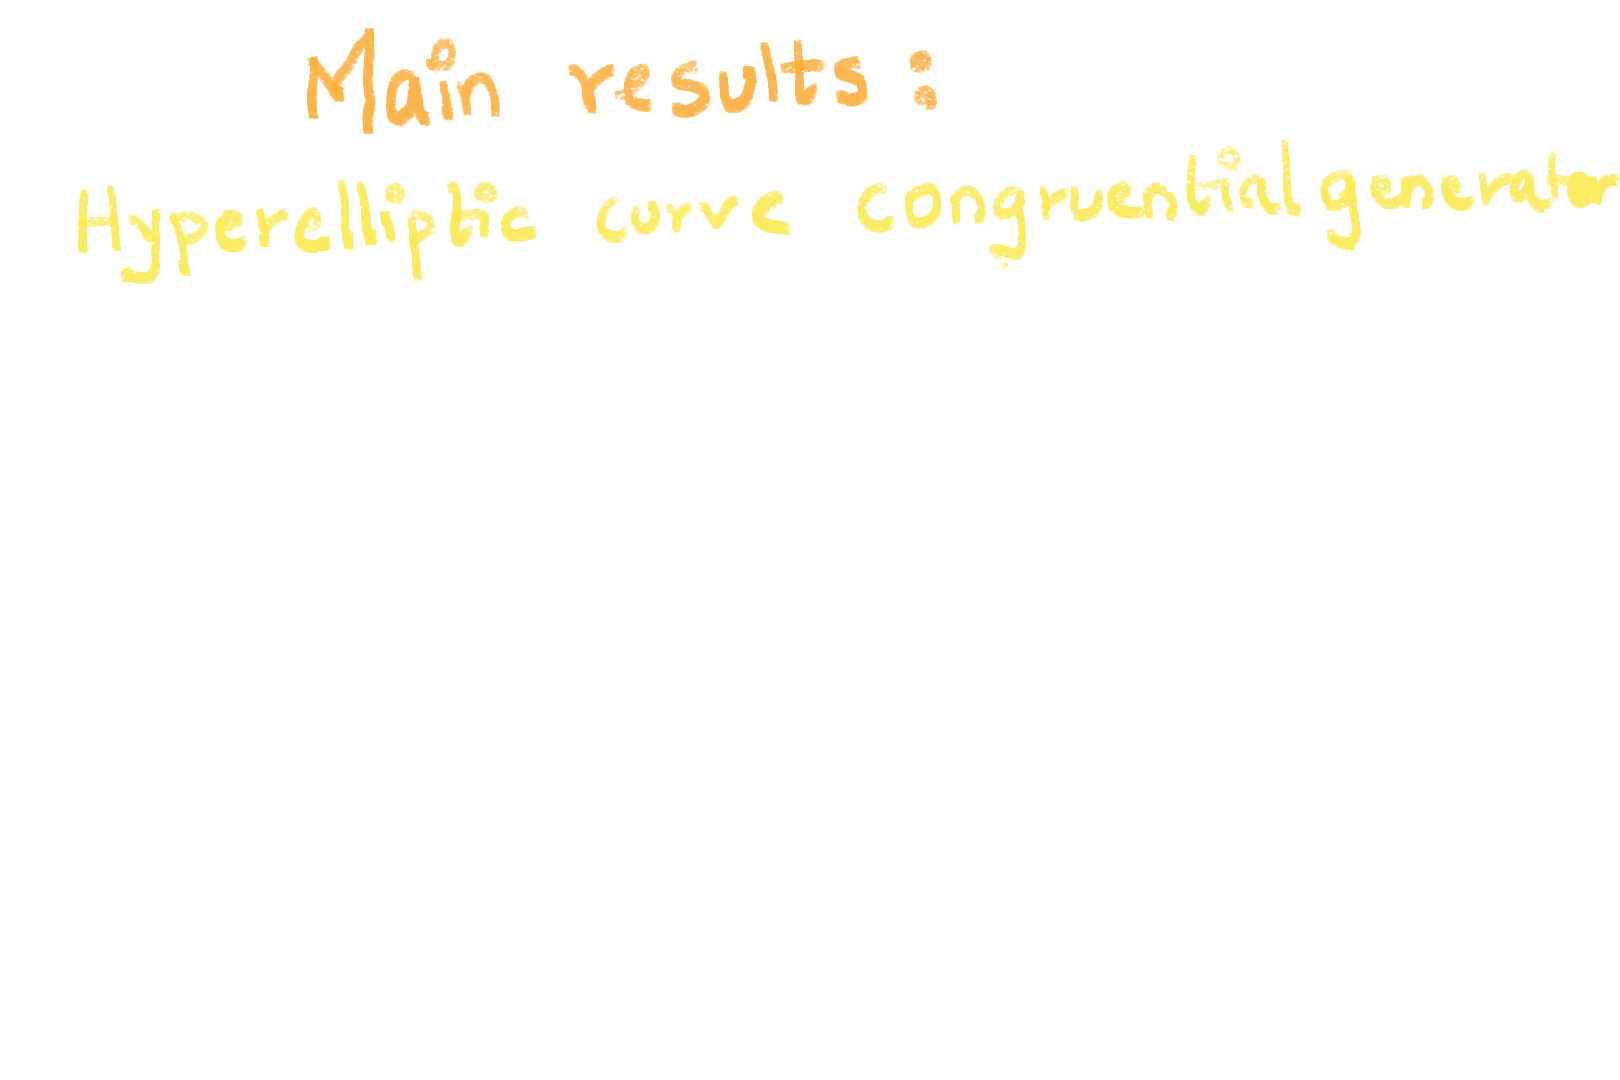 Main results:
Hyperelliptic curve congruential generator